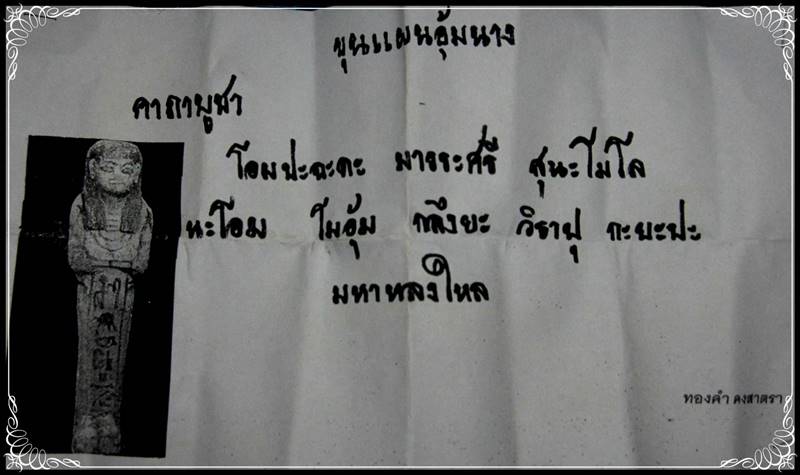 ขุนแผนอุ้มนาง
คาถาบูชา
โอมปะฉะคะ มารระศรี สุนะโมโล
นะโอม โมอุ้ม กลึงยะ วิราปุ กะยะปะ
มหาหลงใหล
ทองคำ คงสาตรา